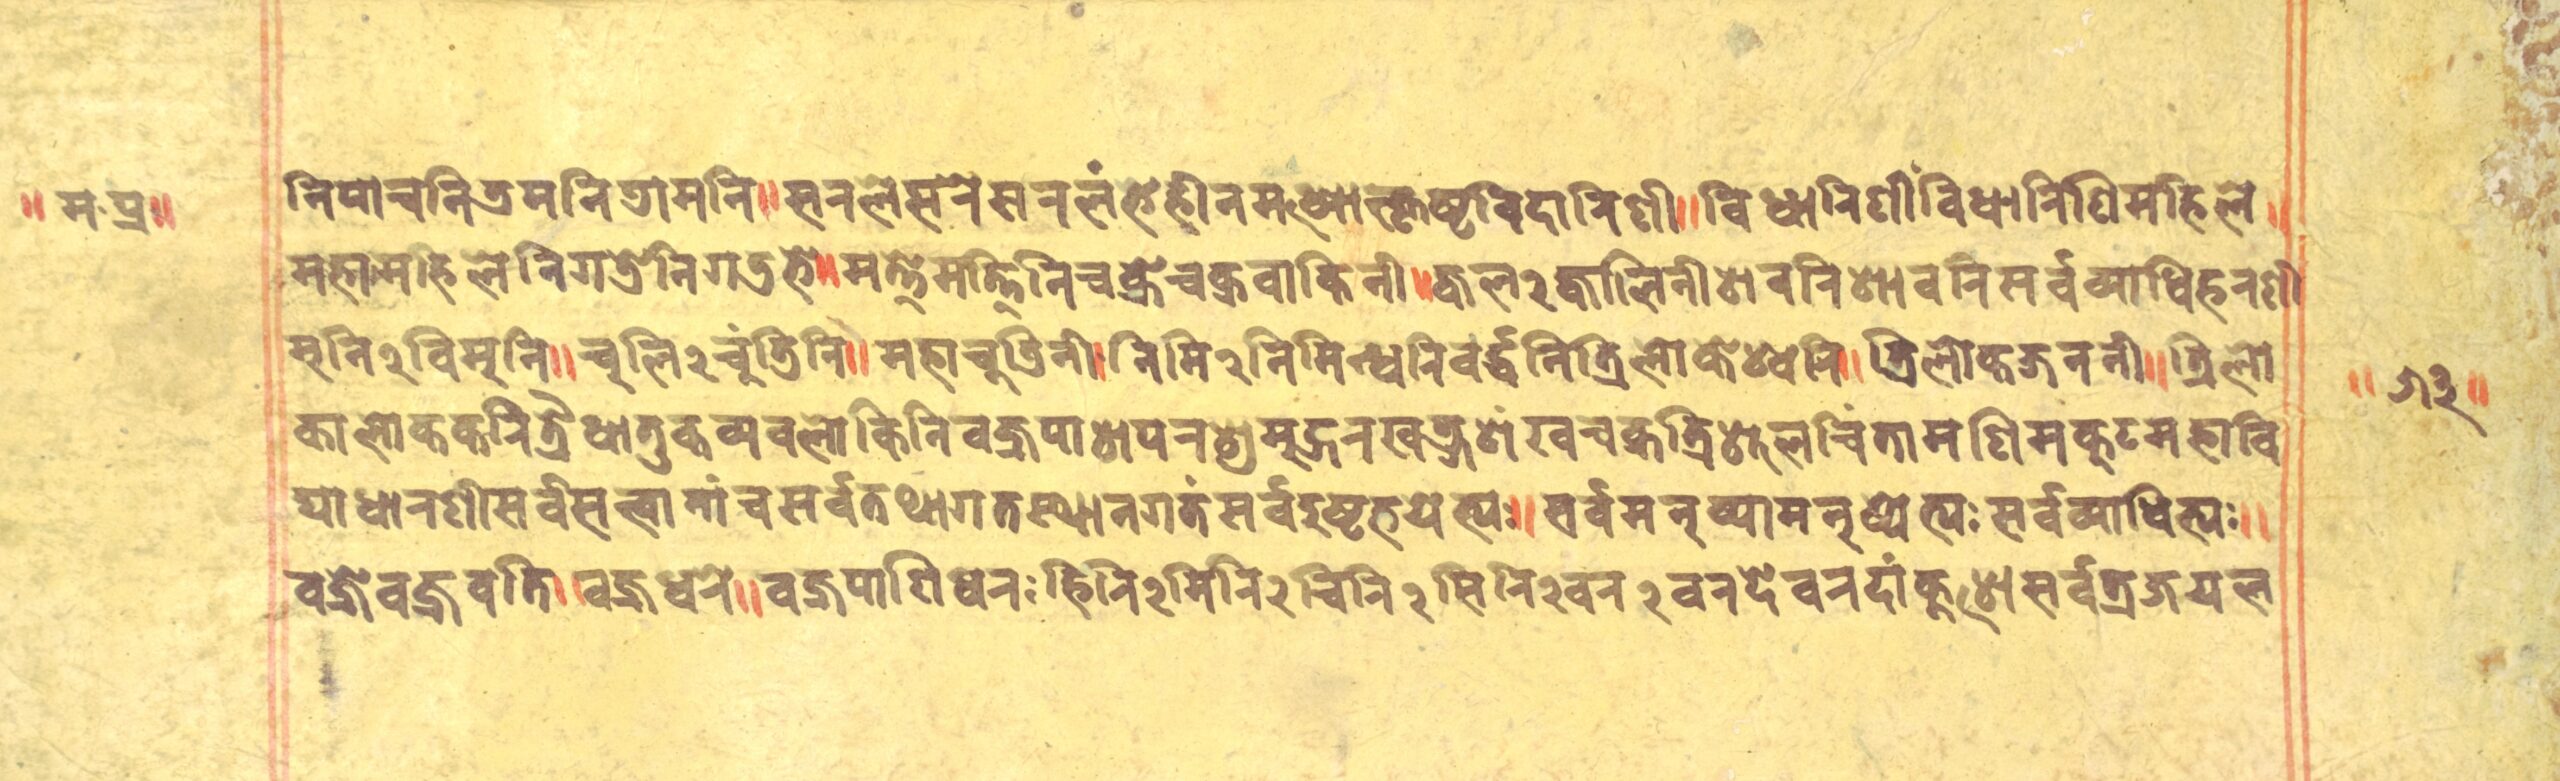 ॥मःप्रः॥
निपाचनितमनितामनि॥सनलेसनेसनलंहेहीनमध्योत्कृष्टविदानिणी॥विधानिणीविधानिणिमहिले॥
महामहिलेनिगडेनिगडहे॥मत्तेमत्तिनिचक्रेचक्रवाकिनी॥ज्वल२ज्वालिनीशवनिशावनिसर्वव्याधिहनणी
मुनि२विमुनि॥चुलि२चुंडिनि॥महाचुडिनी।निमि२निमिन्धनिवर्द्धनित्रिलोकेश्वनि॥त्रिलोकजननी॥त्रिलो
कालोककनित्रैधातुकव्यवलोकिनिवज्रपाशपनशुमुद्गनखड्गशंखचक्रत्रिशूलचिंतामणिमकुटमहावि
द्याधानणीसर्वसत्वानांचसर्वतथागतस्थानगतंसर्वदुष्टहयेभ्यः॥सर्वमनुष्यामनुष्येभ्यःसर्वव्याधिभ्यः॥
वज्रेवज्रवति॥वज्रधने॥वज्रपाणिधनःहिनि२मिनि२चिनि२सिनि२वन२वनदेवनदांकुशेसर्वत्रजयल
॥७३॥